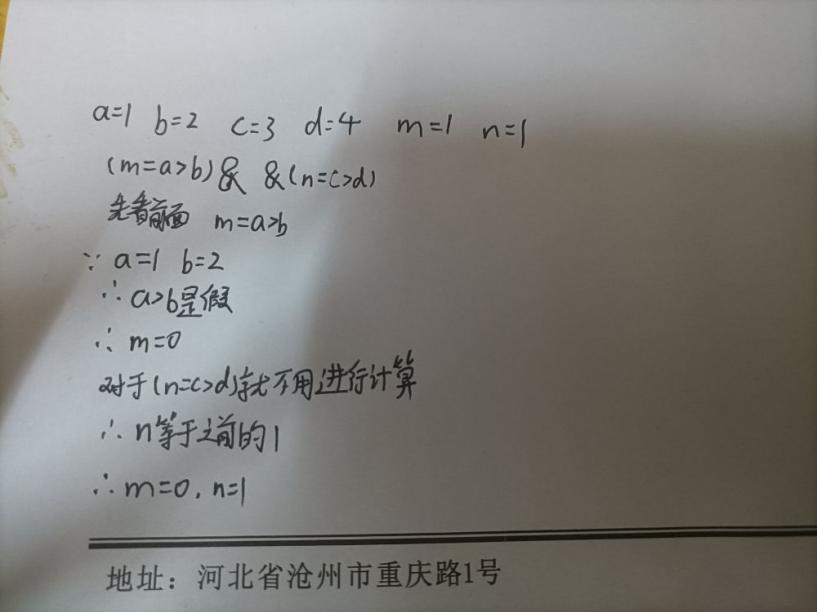 a=1 b=2 c=3 d=4 m=1 n=1
(m=a>b)& &(n=c>d)
先看前面 m=a>b
∵ a=1 b=2
∴ a>b是假
∴ m=0
对于(n=c>d)就不用进行计算
∴ n等于之前的1
∴ m=0, n=1
地址：河北省沧州市重庆路1号